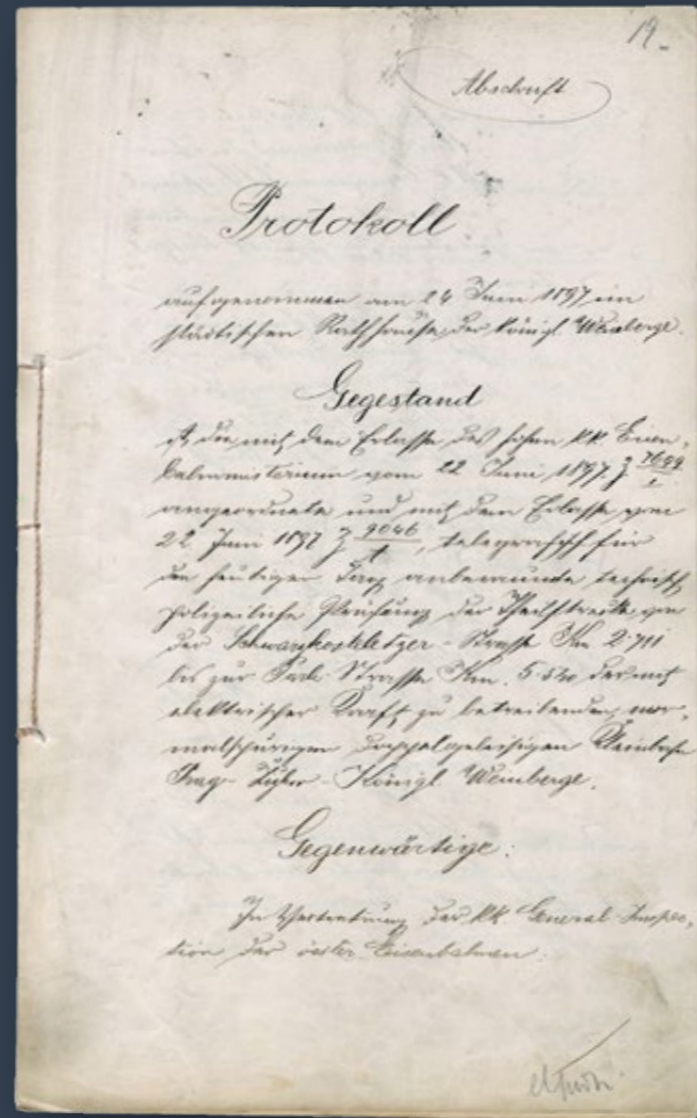 19.
Abschrift
Protokoll
aufgenommen am 24 Juni 1897 im
städtischen Rathhause der königl. Weinberge.
Gegestand
ist die mit dem Erlasse des hohen kk Eisen-
bahnministerium vom 22 Juni 1897. Z
angeordnete und mit dem Erlasse vom
22 Juni 1897 Z 9046, telegrafisch für
den heutigen Tag anberaumte technisch
polizeiliche Prüfung der Theilstrecke von
der Schwarzkosteletzer-Strasse Km 2·711
bis zur Strasse Km. der mit
elektrischer Kraft zu betreibenden, nor-
malspurigen doppelgeleisigen Kleinbahn
Prag-Žižkow-Königl. Weinberge.
Gegenwärtige:
In Vertretung der kk. General-Inspec-
tion der österr Eisenbahnen: